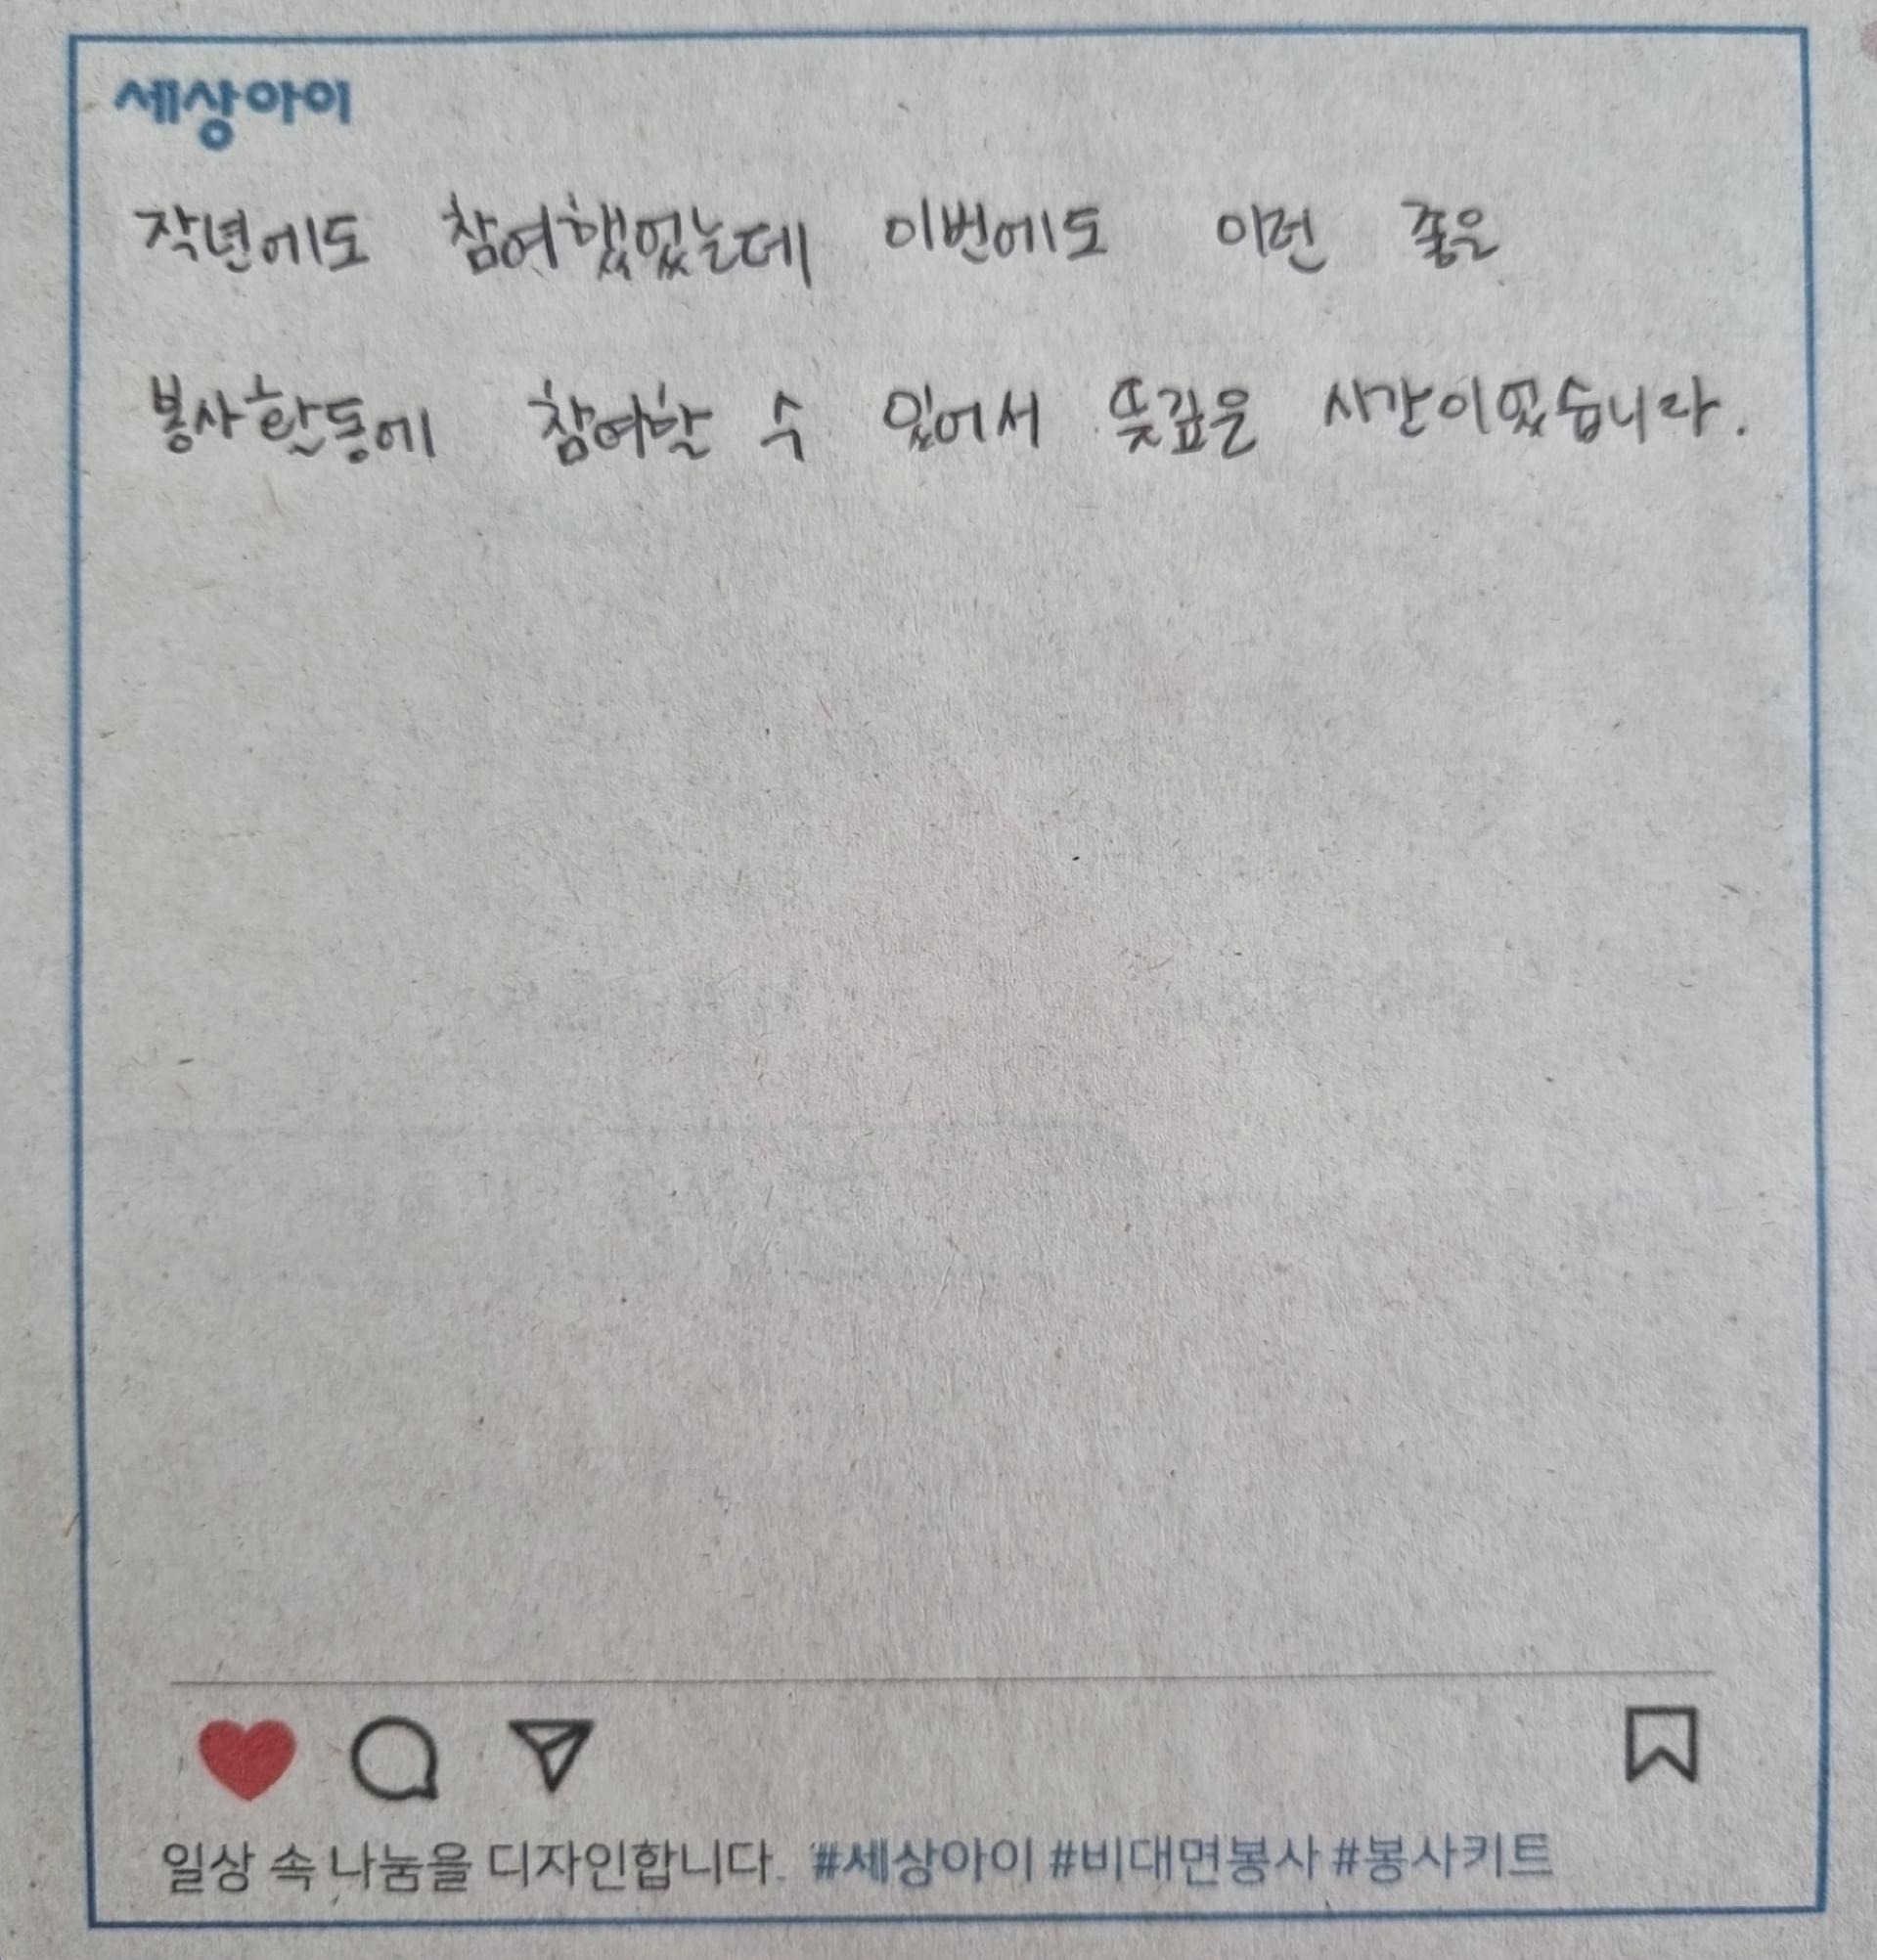 세상아이
작년에도 참여했었는데 이번에도 이런 좋은
봉사활동에 참여할 수 있어서 뜻깊은 시간이었습니다.
일상 속 나눔을 디자인합니다. #세상아이 #비대면봉사 #봉사키트